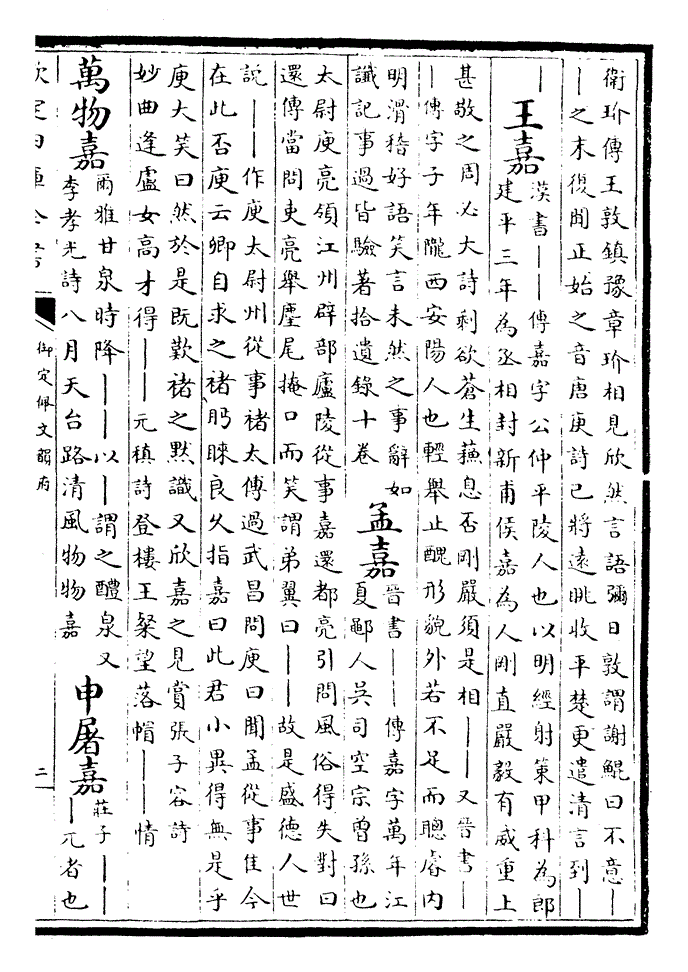 衛玠傳王敦鎮豫章玠相見欣然言語彌日敦謂謝鯤曰不意｜
｜之末復聞正始之音唐庚詩已將遠眺收平楚更遣清言到｜
｜ 王嘉 漢書｜｜傳嘉字公仲平陵人也以明經射策甲科為郎
建平三年為丞相封新甫侯嘉為人剛直嚴毅有威重上
甚敬之周必大詩剩欲蒼生蘓息否剛嚴須是相｜｜又晉書｜
｜傳字子年隴西安陽人也輕舉止醜形貌外若不足而聰睿内
明滑稽好語笑言未然之事辭如
讖記事過皆驗著拾遺錄十卷
孟嘉 晉書｜｜傳嘉字萬年江
夏鄳人吳司空宗曾孫也
太尉庾亮領江州辟部廬陵從事嘉還都亮引問風俗得失對曰
還傳當問吏亮舉麈尾掩口而笑謂弟翼曰｜｜故是盛德人世
説｜｜作庾太尉州從事褚太傅過武昌問庾曰聞孟從事佳今
在此否庾云卿自求之褚眄睞良久指嘉曰此君小異得無是乎
庾大笑曰然於是既歎褚之黙識又欣嘉之見賞張子容詩
妙曲逢盧女高才得｜｜元稹詩登樓王粲望落帽｜｜情
萬物嘉 爾雅甘泉時降｜｜以｜謂之醴泉又
李孝光詩八月天台路清風物物嘉
申屠嘉 莊子｜｜
｜兀者也
御定佩文韻府
二